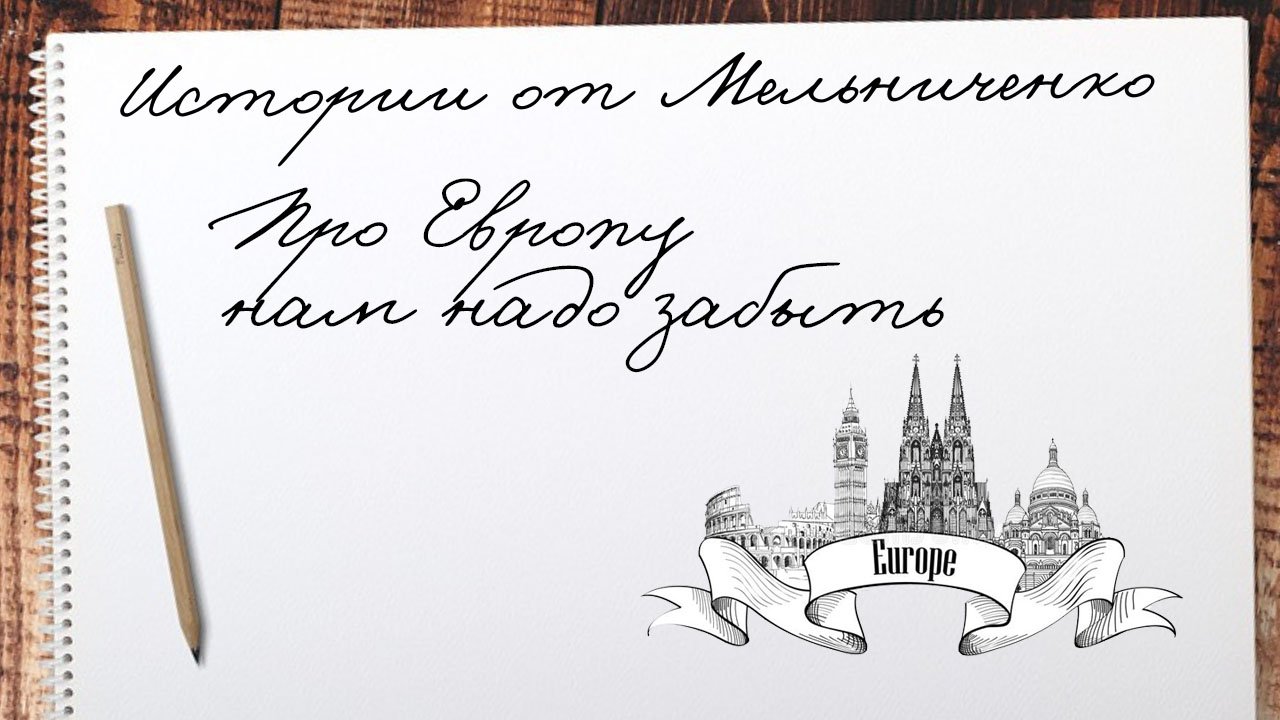 Истории от Мельниченко
Про Европу
нам надо забыть
Europe